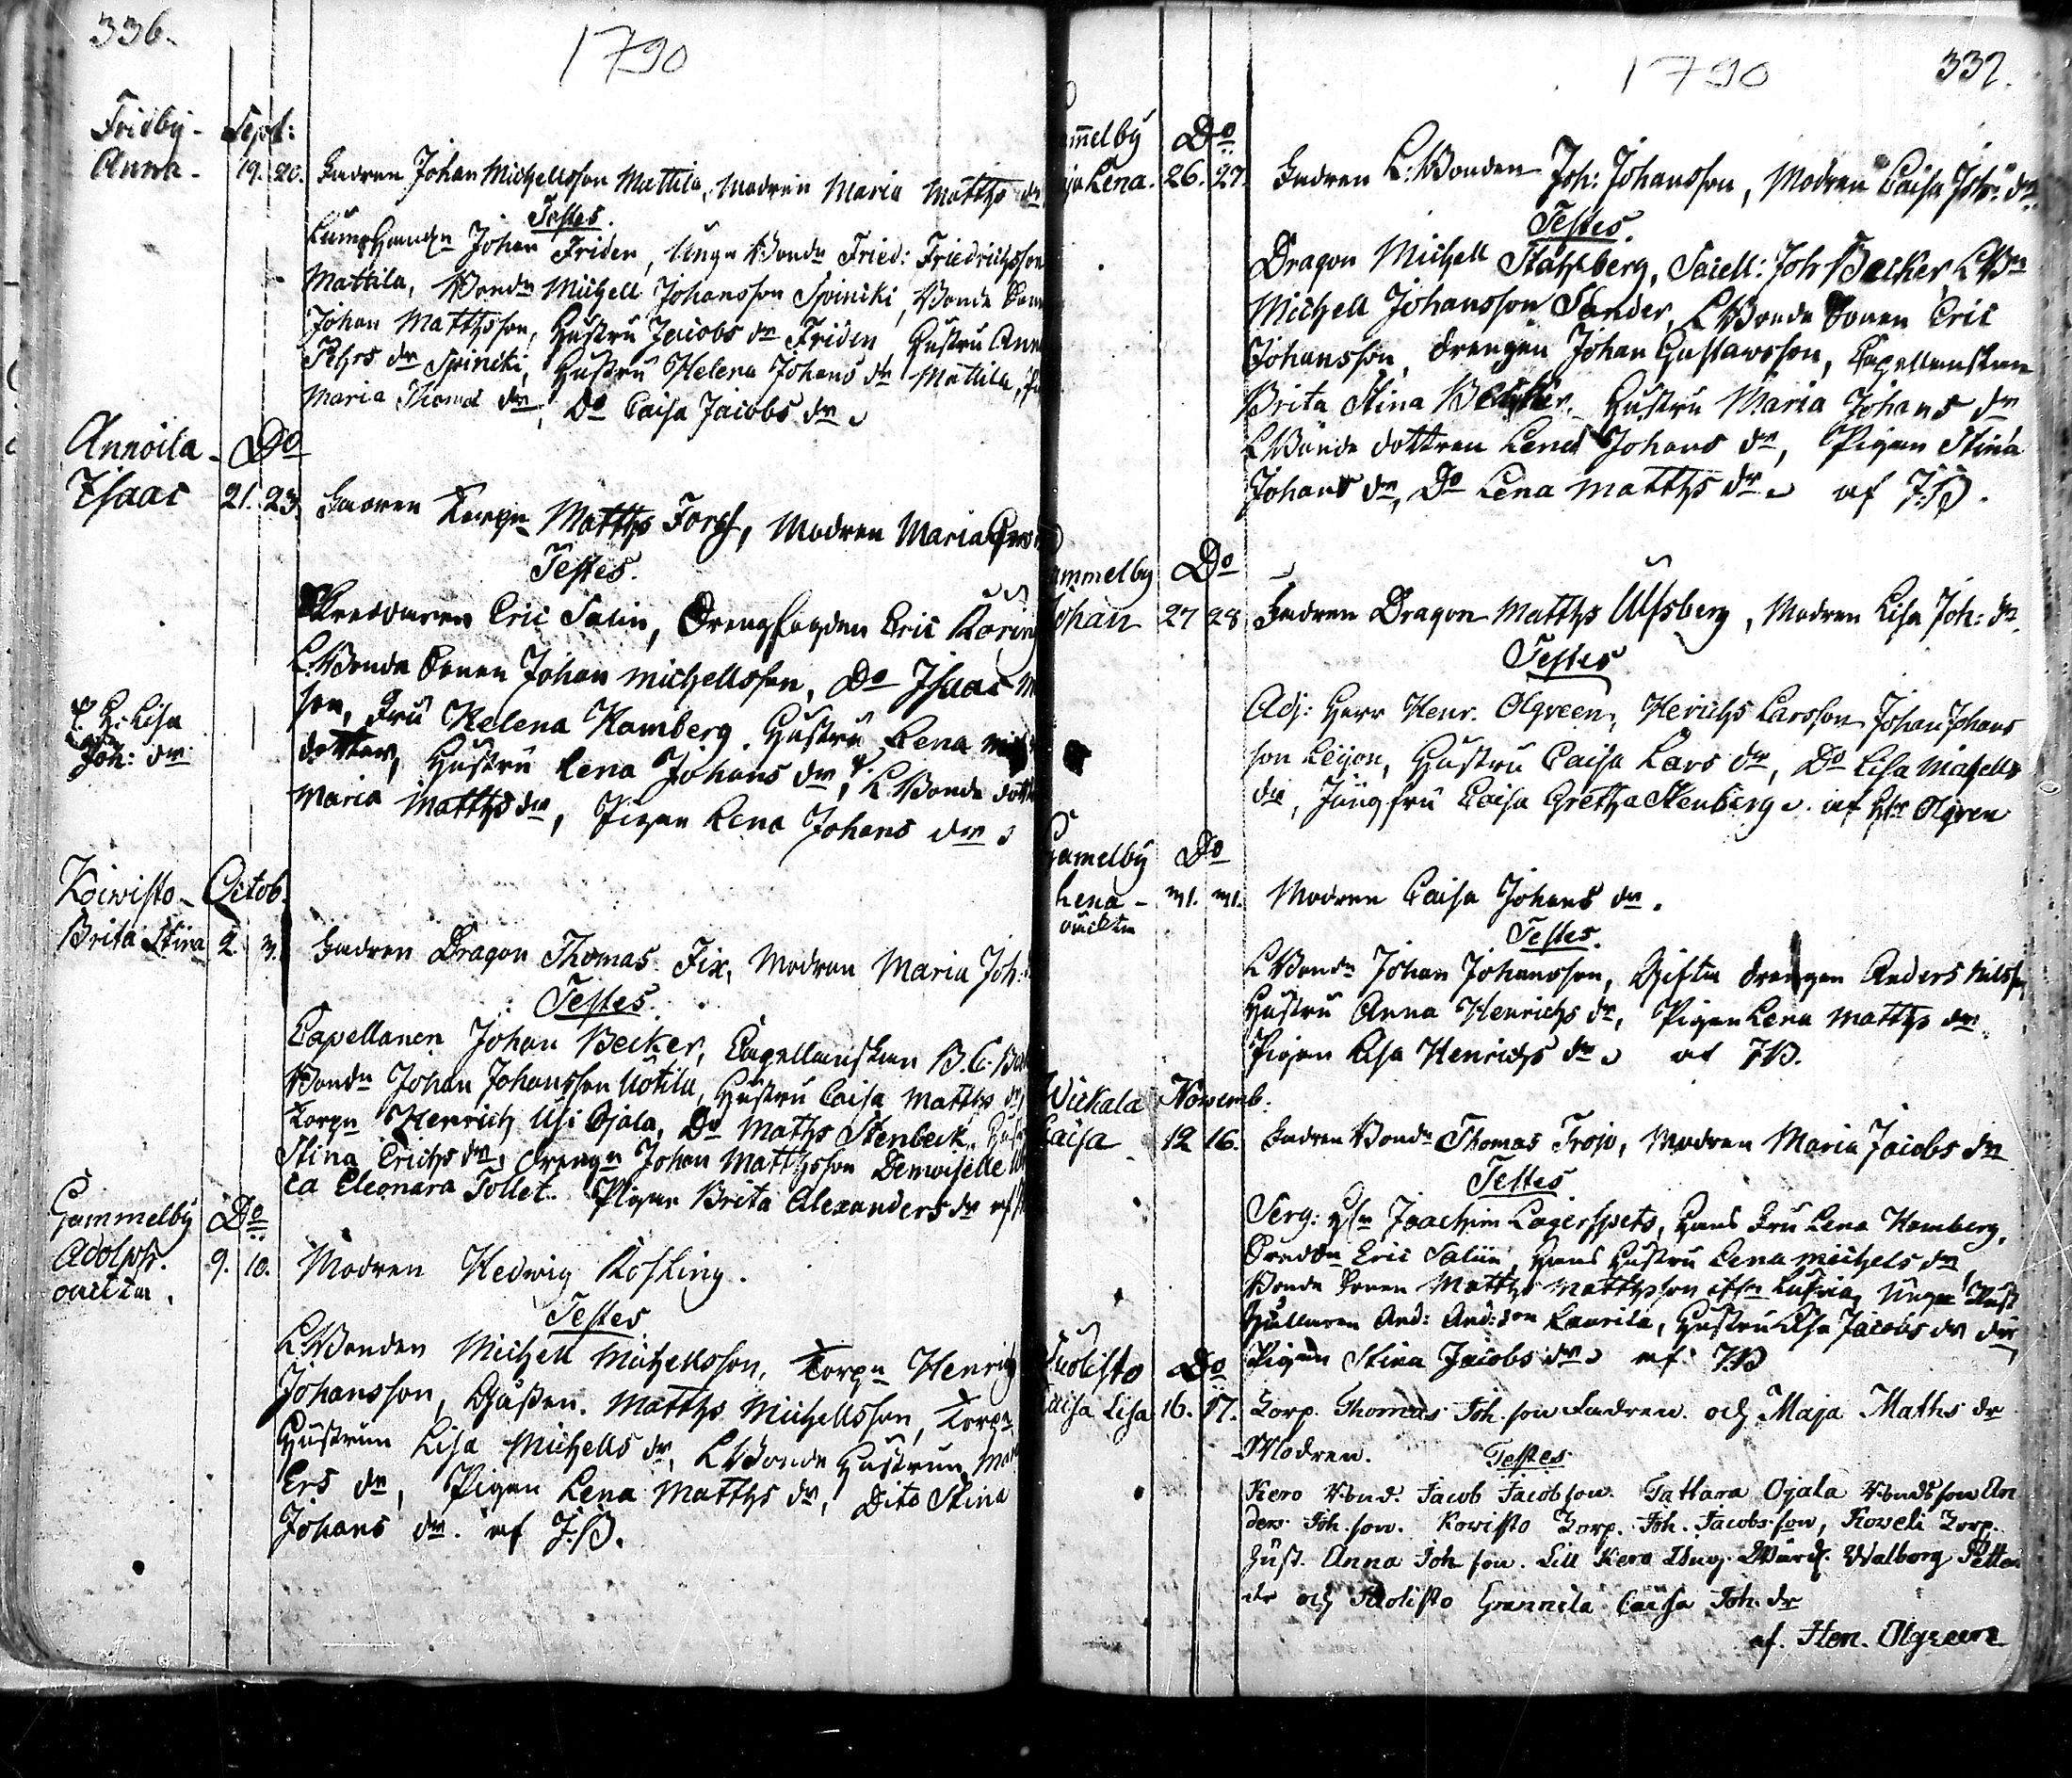 336.
1790
Fridby - Sept:
Anna - 19. 20. Fadren Johan Michellsson Mattila, Modren Maria Matths dr
Testes.
Johan Friden, Unge Bondn Fried: Friedrichsson
Mattila, Bondn Michell Johansson Spiniki, Bonde Sonen
Johan Matthsson, Hustru Jacobs dr Friden Hustru Ann
Pehrs dr Spiniki, Hustru Helena Johans dr Mattila,
Maria Thomæ dr, Do Caisa Jacobs dr
Annoila - Do
Isaac 21. 23. Fadren Torpn Matths Forss, Modren Maria
Testes.
Eric Salin, Drengfogden Eric
L. Bonde Sonen Johan Michellsson, Do Isaac M
son, Fru Helena Hamberg. Hustru Lena
dotter, Hustru Lena Johans dr, L Bonde dott
Maria Matths dr, Pigan Lena Johans dr
H: Lisa
Joh: dr
Koivisto - Octob.
Brita Stina 2. 3. Fadren Dragon Thomas Fix, Modren Maria Joh:
Testes.
Capellanen Johan Becker, Capellanskan B. C.
Bondn Johan Johansson Uotila, Hustru Caisa Matths dr
Torpn Henrich Usi Ojala, Do Maths Stenbeck,
Stina Erichs dr, drengn Johan Matthsson Demoiselle
ca Eleonara Tollet. Pigan Brita Alexanders dr af
Gammelby Do
Adolph. 9. 10. Modren Hedwig Kosking.
oäckta.
Testes
L. Bonden Michell Michellsson, Torpn Henrich
Johansson, Gossen Matths Michellsson, Torpn
Hustrun Lisa Michells dr, L Bonde Hustrun
Ers dr, Pigan Lena Matths dr, Dito Stina
Johans dr. af J. B.
1790
337.
ammelby Do
Lena. 26. 27. Fadren L. Bonden Joh: Johansson, Modren Caisa Joh: dr
Testes.
Dragon Michell Ståhlberg, Sacell: Joh Becker, L Bn
Michell Johansson Sander, L Bonde Sonen Eric
Johansson, drengen Johan Gustavsson, Capellanskan
Brita Stina Becker, Hustru Maria Johans dr
L Bonde dottren Lena Johans dr, Pigan Stina
Johans dr, Do Lena Matths dr af J. B.
ammelby Do
Johan 27 28 Fadren Dragon Matths Ulfsberg, Modren Lisa Joh: dr.
Testes
Adj: Herr Henr. Olgreen, Herichs Larsson Johan Johans
son Leijon, Hustru Caisa Lars dr, Do Lisa Michells
dr, Jungfru Caisa Gretha Stenberg. af Hr Olgren
Gamelby Do
Lena - 31. 31. Modren Caisa Johans dr.
oäckta
Testes.
L Bondn Johan Johansson, Gifta drengen Anders Nilsson
Hustru Anna Henrichs dr, Pigan Lena Matths dr
Pigan Lisa Henrichs dr af J B.
Wickala Novemb.
Caisa 12 16. Fadren Bondn Thomas Trojo, Modren Maria Jacobs dr
Testes
Serg: Joachim Lagerspets, Hans Fru Lena Hamberg,
Eric Saliin, Hans Hustru Lena Michels dr
Bonde Sonen Matths Matthsson, Unga
And: And:son Laurila, Hustru Lisa Jacobs dr
Pigan Stina Jacobs dr af J B
Suolisto Do
Caisa Lisa 16. 17. Torp. Thomas Joh. son Fadren. och Maja Maths dr
Modren. Testes
Kero Bond. Jacob Jacobson. Tattara Ojala Bondson An
ders Joh. son. Kowisto Torp. Joh. Jacobs.son, Koveli Torp.
Hust. Anna Joh son. Lill Kero Ung. Walborg Petter
dr och Suolisto Grannila Caisa Joh. dr
af. Hen. Olgreen